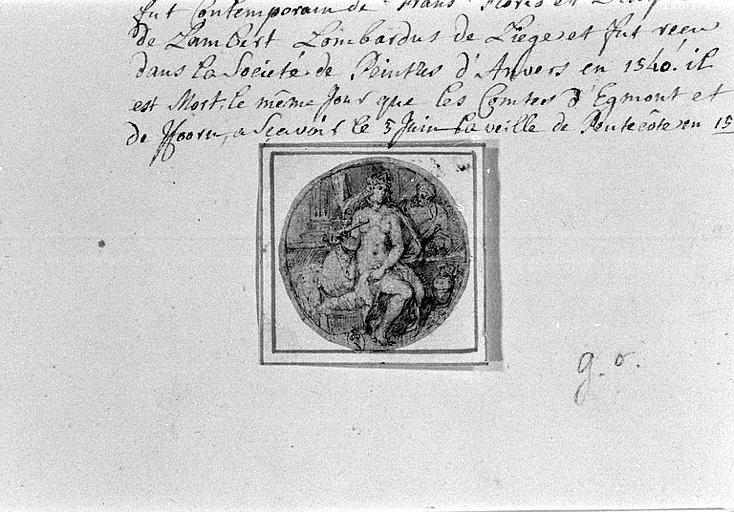 fut Contemporain de Frans Floris et
de Lambert Lombardus de Liege et fut reçu
dans la Societé de Peintres d'Anvers en 1540. il
est Mort le même Jour que les Comtes d'Egmont et
de Hoorn, a Sçavoir le 5 Juin la veille de Pentecôte en 15
g. o.